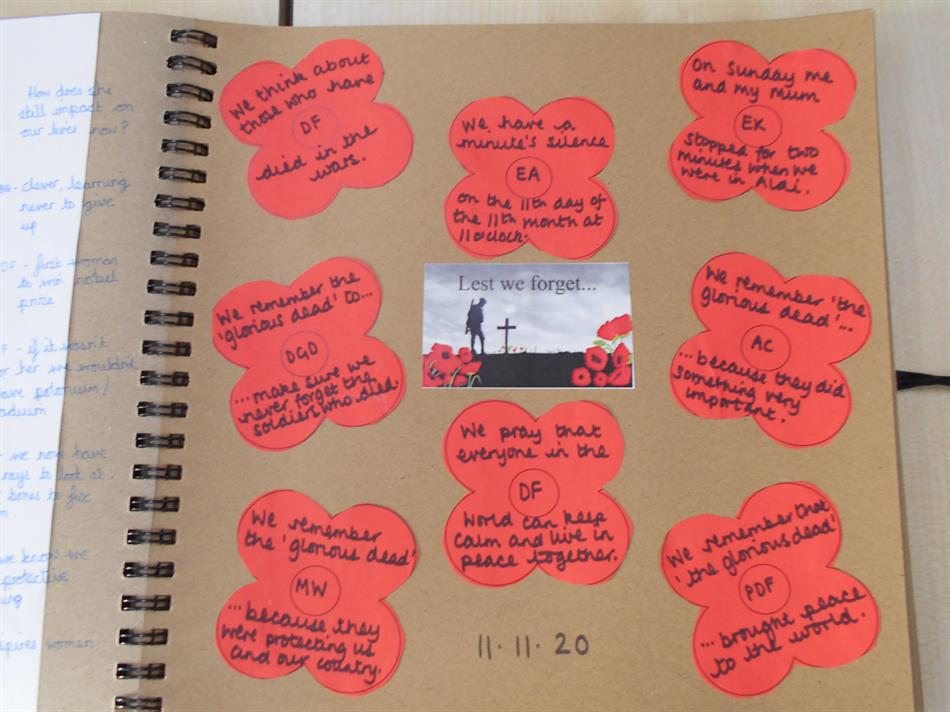 How does she
still impact on
our lives now?
clever, learning
never to give
up
DF - first woman
to win nobel
prize
if it wasn't
for her we wouldn't
have polonium/
radium
we now have
rays to look at
bones to fix
we know we
protective
women.
We think about
those who have
DF
died in the
wars.
We have a
minute's silence
EA
on the 11th day of
the 11th month at
11 o'clock.
On Sunday me
and my mum
EK
stopped for two
minutes when we
were in Aldi.
We remember the
'glorious dead' to...
DGD
...make sure we
never forget the
soldiers who died.
Lest we forget...
We remember 'the
glorious dead'...
AC
...because they did
something very
important.
We remember
the 'glorious dead'
MW
...because they
were protecting us
and our country.
We pray that
everyone in the
DF
World can keep
calm and live in
peace together.
We remember that
'the glorious dead'
PDF
...brought peace
to the world.
11.11.20